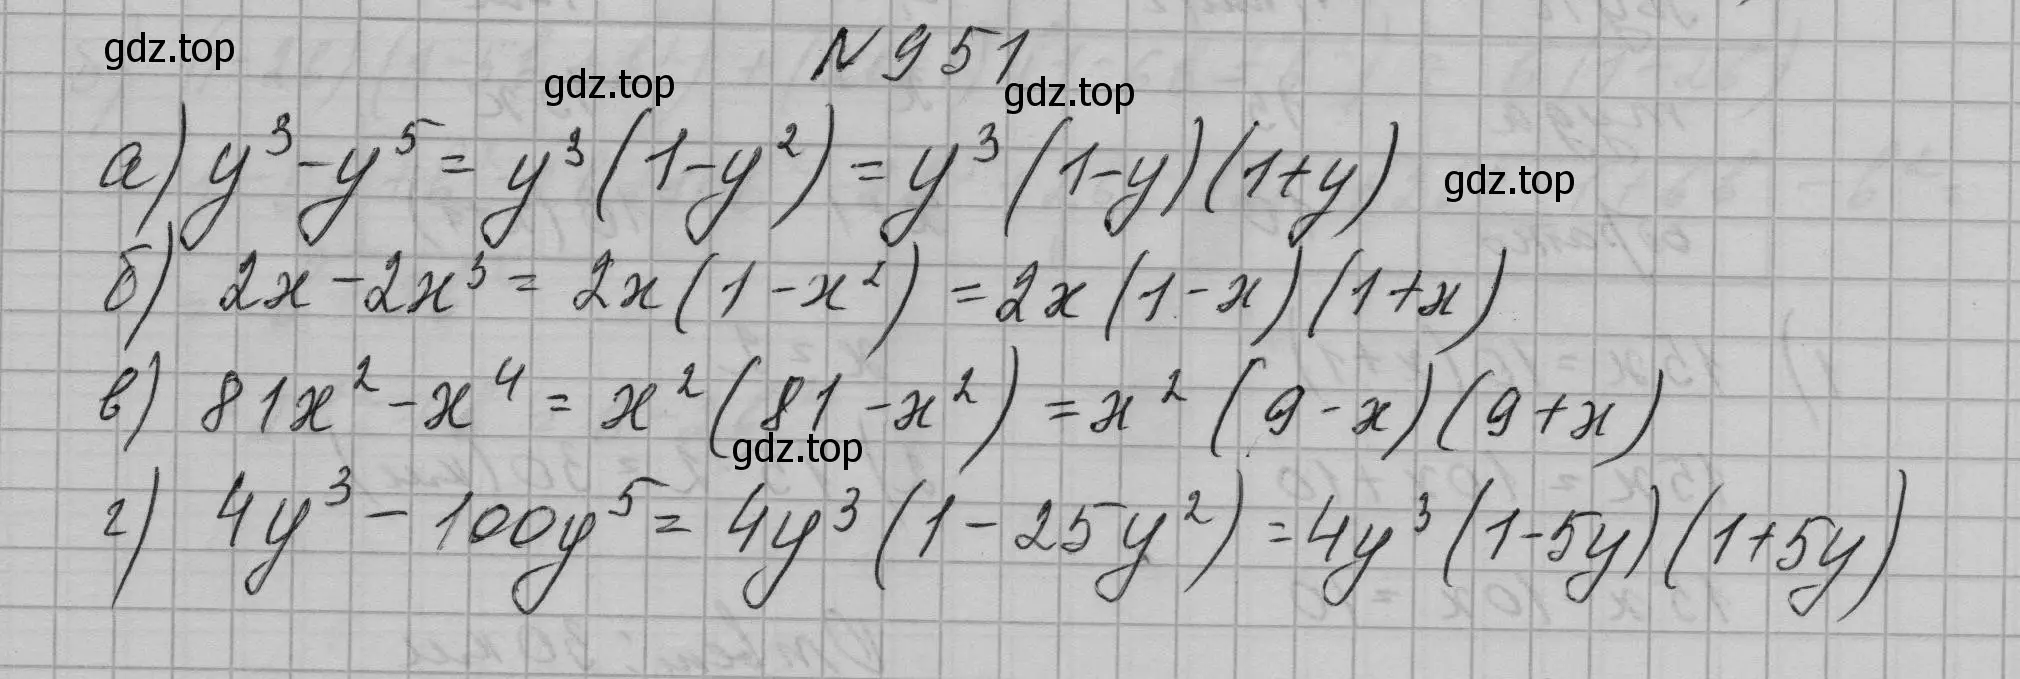 gdz.top
N 951
gdz.top
gdz.top
а) y³ - y⁵ = y³ (1 - y²) = y³ (1 - y) (1 + y)
gdz.top
б) 2x - 2x³ = 2x (1 - x²) = 2x (1 - x) (1 + x)
в) 81x² - x⁴ = x² (81 - x²) = x² (9 - x) (9 + x)
gdz.top
г) 4y³ - 100y⁵ = 4y³ (1 - 25y²) = 4y³ (1 - 5y) (1 + 5y)